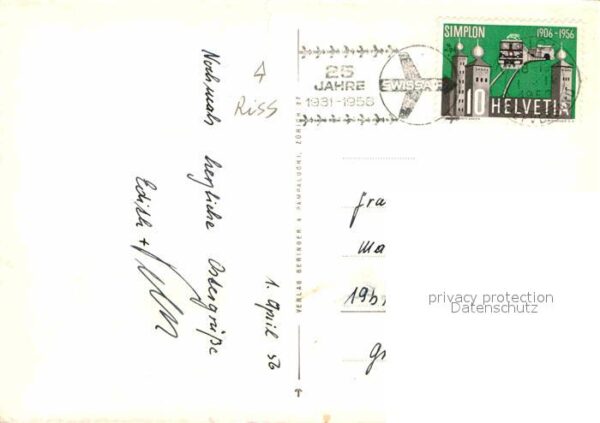 Nochmals herzliche Ostergrüße
Edith +
1. April 56
4
Riss
25
JAHRE
1931-1956
SWISSAIR
SIMPLON 1906-1956
10 HELVETIA
VERLAG BERINGER & PAMPALUCHI, ZÜRICH 57
Fra
Ma
privacy protection
Datenschutz